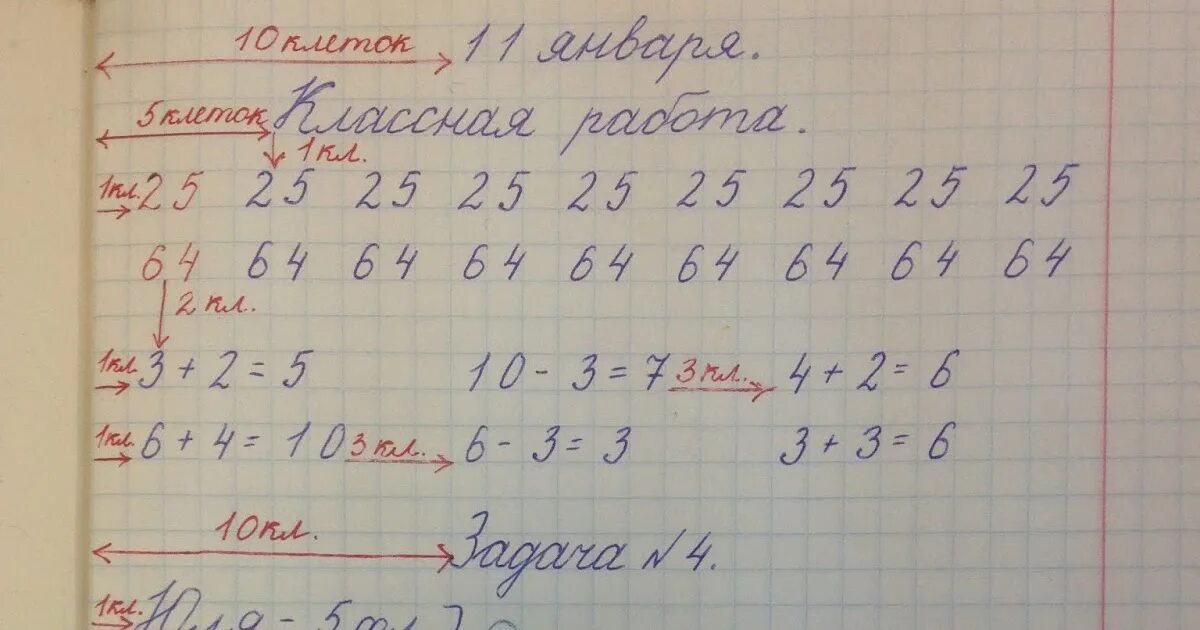 10 клеток 11 января.
5 клеток Классная работа.
1 кл.
1кл. 25 25 25 25 25 25 25 25 25
64 64 64 64 64 64 64 64 64
2 кл.
1кл. 3 + 2 = 5 10 - 3 = 7 3 кл. 4 + 2 = 6
1кл. 6 + 4 = 10 3 кл. 6 - 3 = 3 3 + 3 = 6
10 кл. Задача № 4.
1кл. Юля - 5